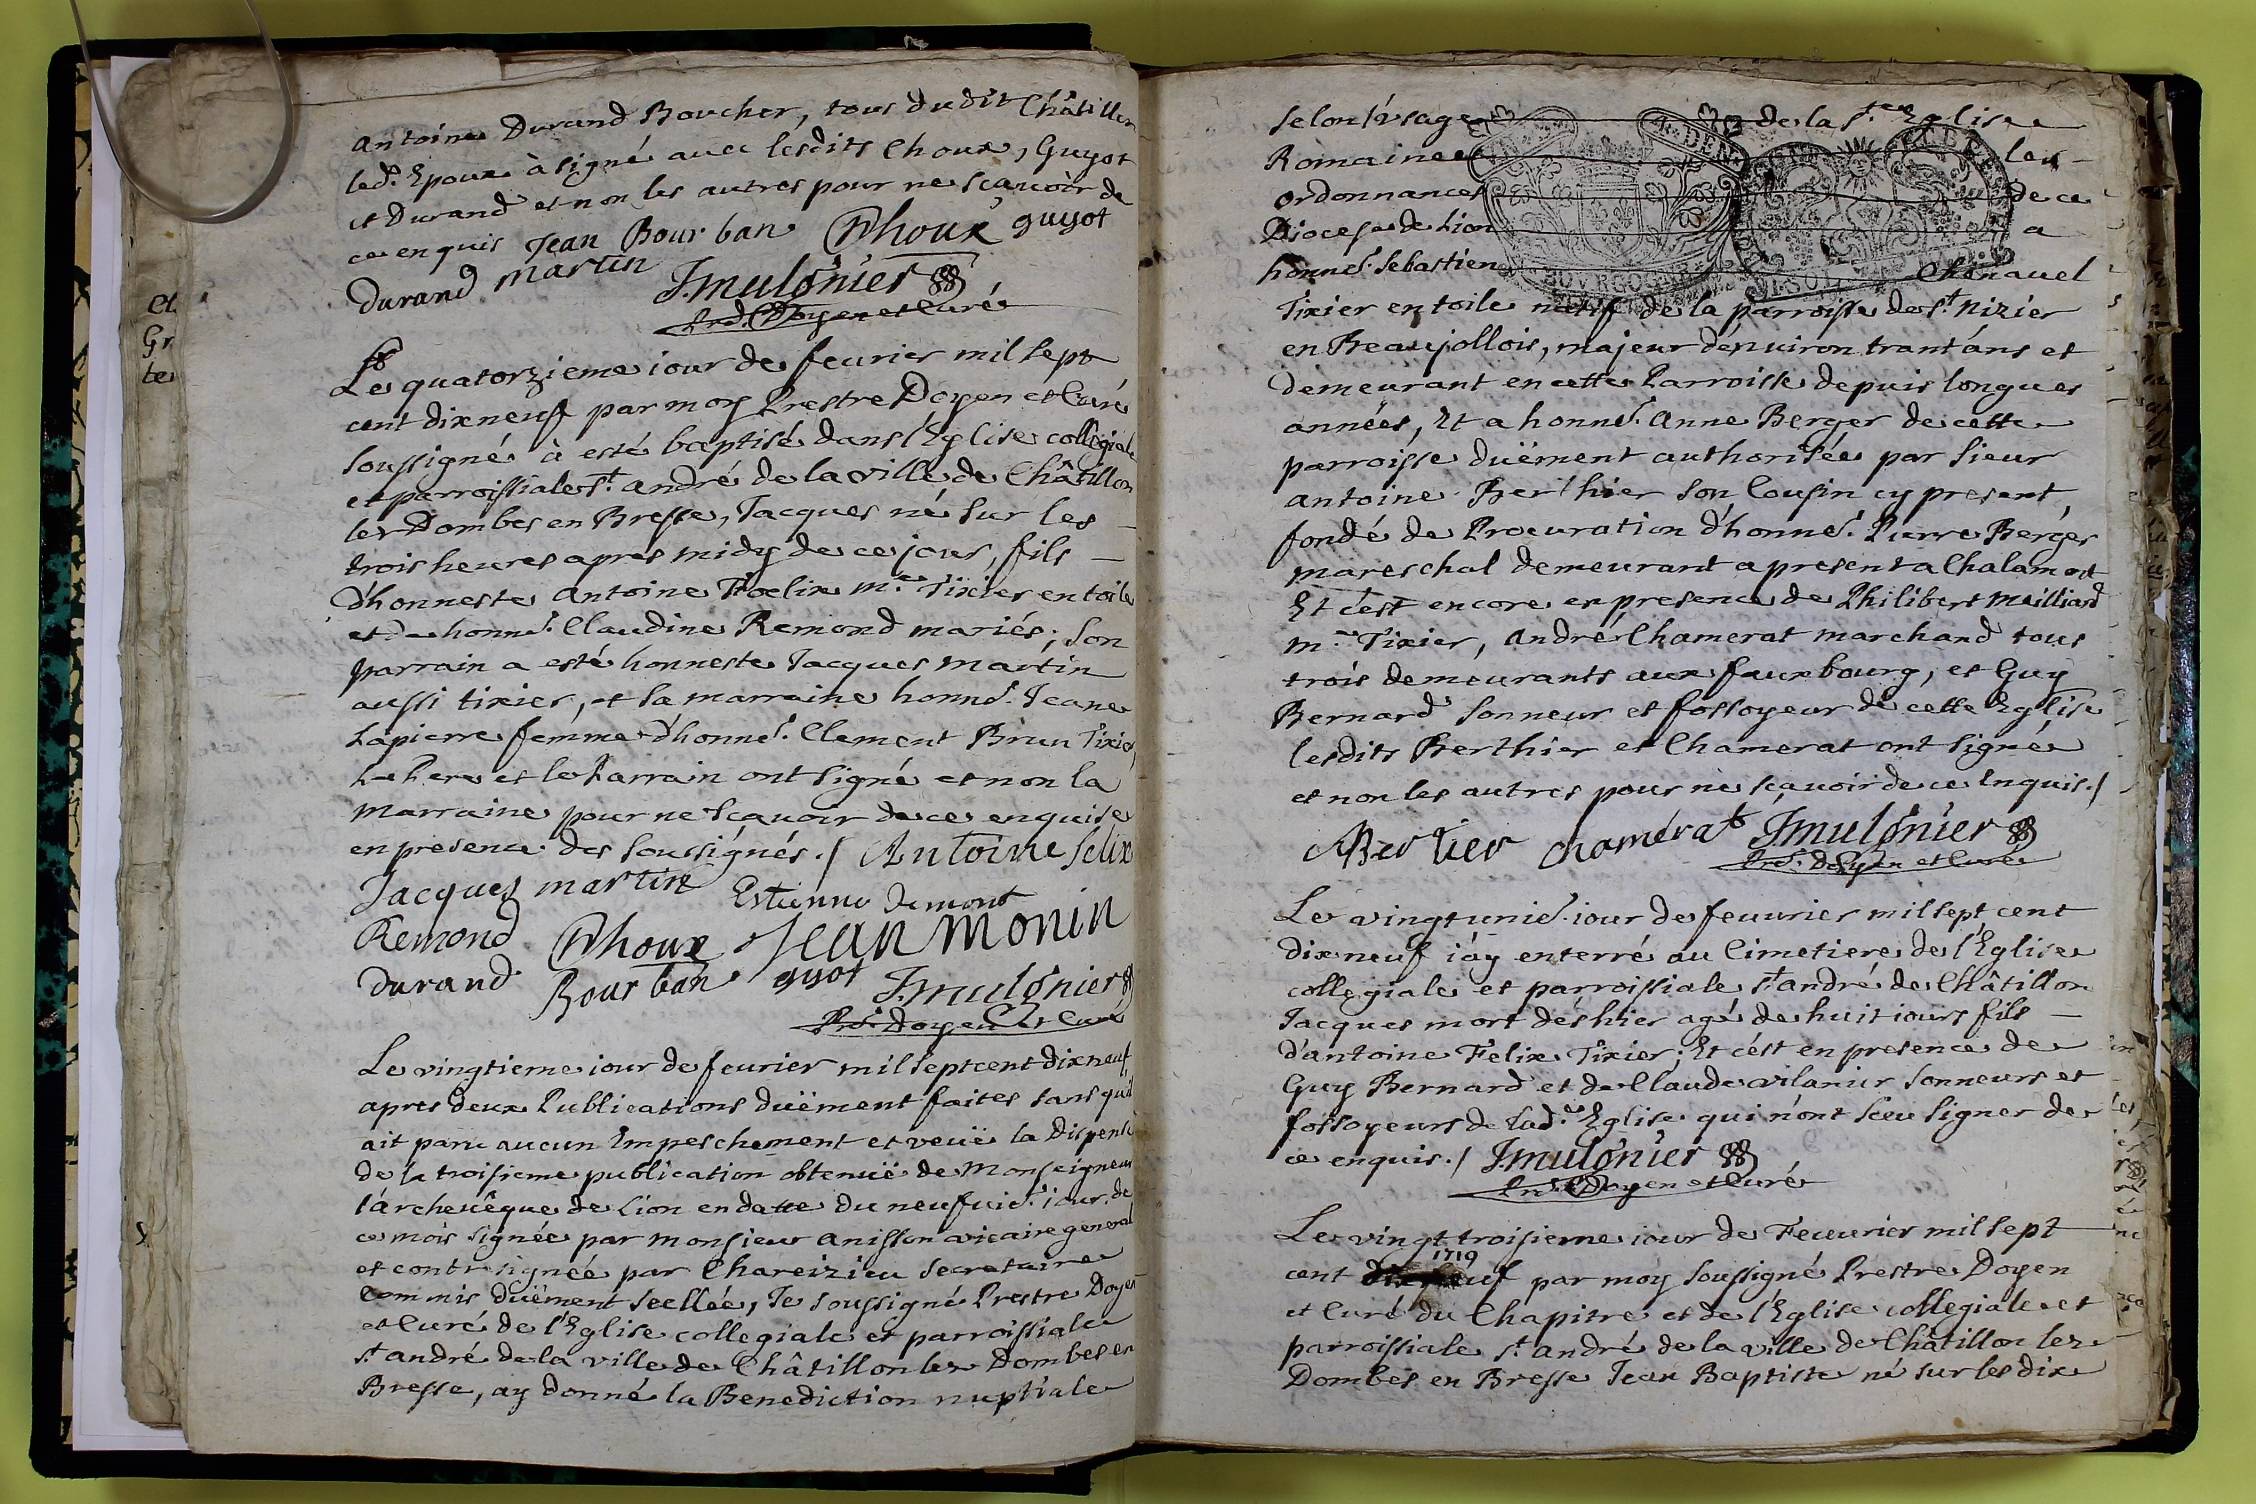 antoine Durand Boucher, tous dudit Châtillon
led. Epoux à signé avec lesdits Choux, Guyot
et Durand et non les autres pour ne sçauoir de
ce enquis Jean Bourban Choux guyot
Durand martin J. mulonier
Prd. Doyen et Curé
Le quatorzieme iour de feurier mil sept
cent dixneuf par moy Prestre Doyen et Curé
soussigné à esté baptisé dans l'Eglise collegiale
et parroissiale st. andré de la ville de Châtillon
les Dombes en Bresse, Jacques né sur les
trois heures apres midy de ce jour, fils
d'honneste antoine Foelix me. Tixier en toile
et de honne. Claudine Remond mariés; son
parrain a esté honneste Jacques martin
aussi tixier, et la marraine honne. Jeane
Lapierre femme d'honne. Clement Brun Tixier,
Le Pere et le Parrain ont signé et non la
marraine pour ne sçauoir de ce enquise
en presence des soussignés./ Antoine felix
Jacques martin Estienne Demont
Remond Choux Jean monin
Durand Bourban guyot J. mulonier
Prd. Doyen et Curé
Le vingtieme iour de feurier mil sept cent dixneuf
apres deux Publications duëment faites sans qu'il
ait paru aucun Impeschement et veuë la Dispense
de la troisieme publication obtenuë de Monseigneur
l'archeuêque de Lion en datte du neufuie. iour de
ce mois signée par monsieur anisson vicaire general
et contresignée par Chareizieu secretaire
Commis duëment scellée, Je soussigné Prestre Doyen
et Curé de l'Eglise collegiale et parroissiale
st. andré de la ville de Châtillon les Dombes en
Bresse, ay donné la Benediction nuptiale
selon l'vsage de la ste. Eglise
Romaine les
ordonnances de ce
Diocese de Lion a
honne. sebastien Chanauel
Tixier en toile natif de la parroisse de st. nizier
en Beaujollois, majeur d'enuiron trant'ans et
demeurant en cette Parroisse depuis longues
années, Et a honne. anne Berger de cette
parroisse duëment authorisée par sieur
antoine Berthier son Cousin cy present,
fondé de Procuration d'honne. Pierre Berger
mareschal demeurant a present a Chalamont
Et c'est encore en presence de Philibert Meilliard
me. Tixier, andré Chamerat marchand tous
trois demeurants aux fauxbourg, et Guy
Bernard sonneur et fossoyeur de cette Eglise
lesdits Berthier et Chamerat ont signé
et non les autres pour ne sçauoir de ce Enquis./
Bertier chamerat J. mulonier
Prd. Doyen et Curé
Le vingtunie. iour de feuurier mil sept cent
dixneuf i'ay enterré au Cimetiere de l'Eglise
collegiale et parroissiale st. andré de Châtillon
Jacques mort des hier agé de huit iours fils
d'antoine Felix Tixier; Et c'est en presence de
Guy Bernard et de Claude vilanier sonneurs et
fossoyeurs de lade. Eglise qui n'ont sceu signer de
ce enquis./ J. mulonier
Prd. Doyen et Curé
Le vingt troisieme iour de Feuurier mil sept
1719
cent dixneuf par moy soussigné Prestre Doyen
et Curé du Chapitre et de l'Eglise collegiale et
parroissiale st. andré de la ville de Châtillon les
Dombes en Bresse Jean Baptiste né sur les dix